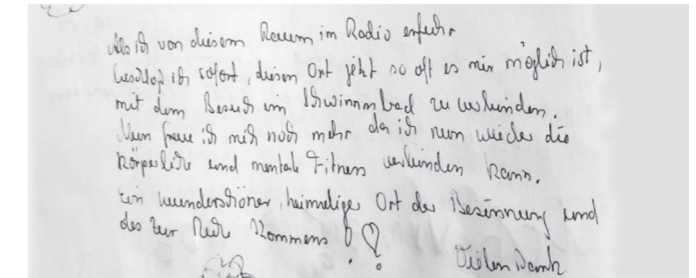 Als ich von diesem Raum im Radio erfuhr
beschloß ich sofort, diesen Ort jetzt so oft es mir möglich ist,
mit dem Besuch im Schwimmbad zu verbinden.
Nun freue ich mich noch mehr da ich nun wieder die
körperliche und mentale Fitness verbinden kann.
Ein wunderschöner, heimelige Ort der Besinnung und
des zur Ruhe Kommens !
Vielen Dank